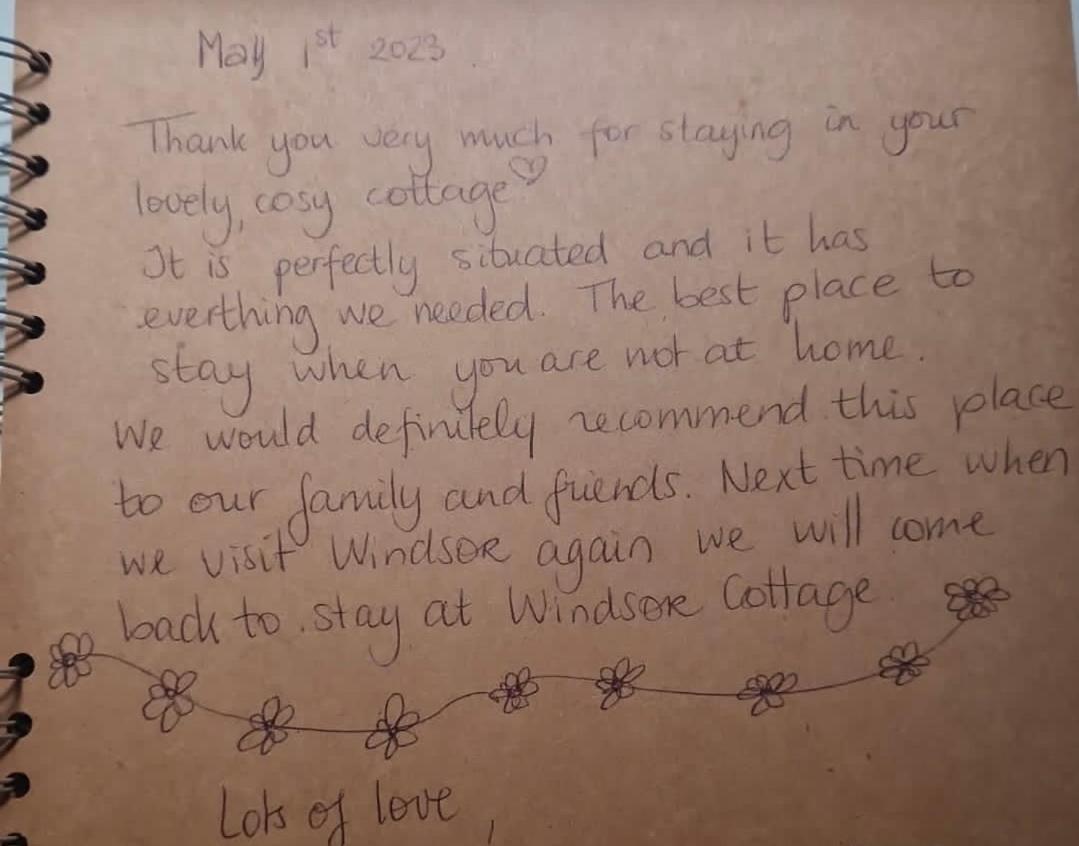 May 1st 2023.
Thank you very much for staying in your
lovely, cosy cottage♡
It is perfectly situated and it has
everthing we needed. The best place to
stay when you are not at home.
We would definitely recommend this place
to our family and friends. Next time when
we visit Windsor again we will come
back to stay at Windsor Cottage.
Lots of love,